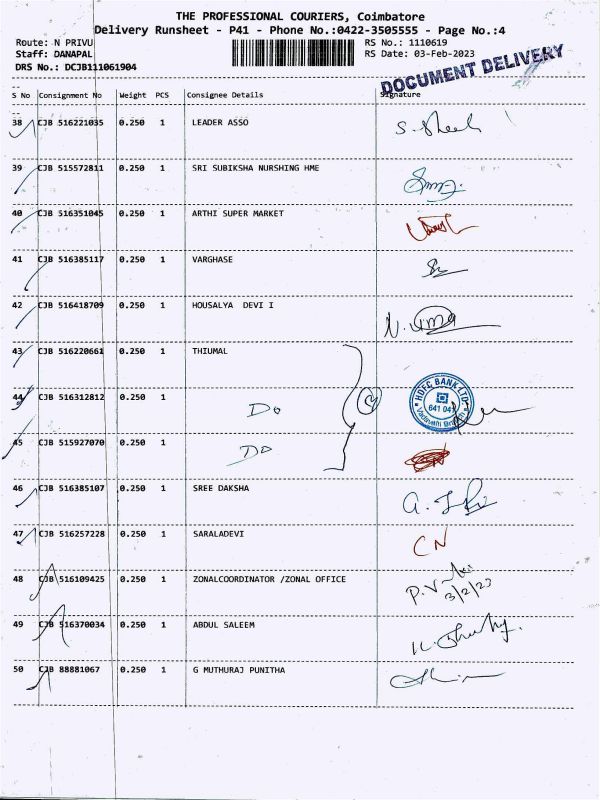 THE PROFESSIONAL COURIERS, Coimbatore
Delivery Runsheet - P41 - Phone No.:0422-3505555 - Page No.:4
Route: N PRIVU
RS No.: 1110619
Staff: DANAPAL
RS Date: 03-Feb-2023
DRS No.: DCJB111061904
DOCUMENT DELIVERY
S No Consignment No Weight PCS Consignee Details Signature
38 CJB 516221035 0.250 1 LEADER ASSO
39 CJB 515572811 0.250 1 SRI SUBIKSHA NURSHING HME
40 CJB 516351045 0.250 1 ARTHI SUPER MARKET
41 CJB 516385117 0.250 1 VARGHASE
42 CJB 516418709 0.250 1 HOUSALYA DEVI I
N. Uma
43 CJB 516220661 0.250 1 THIUMAL
44 CJB 516312812 0.250 1 Do
HDFC BANK LTD.
641 041
45 CJB 515927070 0.250 1 Do
46 CJB 516385107 0.250 1 SREE DAKSHA
47 CJB 516257228 0.250 1 SARALADEVI CN
48 CJB 516109425 0.250 1 ZONALCOORDINATOR /ZONAL OFFICE
3/2/23
49 CJB 516370034 0.250 1 ABDUL SALEEM
50 CJB 88881067 0.250 1 G MUTHURAJ PUNITHA